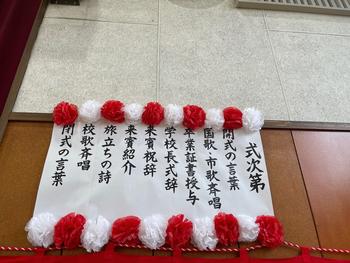 式次第
開式の言葉
国歌・市歌斉唱
卒業証書授与
学校長式辞
来賓祝辞
来賓紹介
旅立ちの詩
校歌斉唱
閉式の言葉